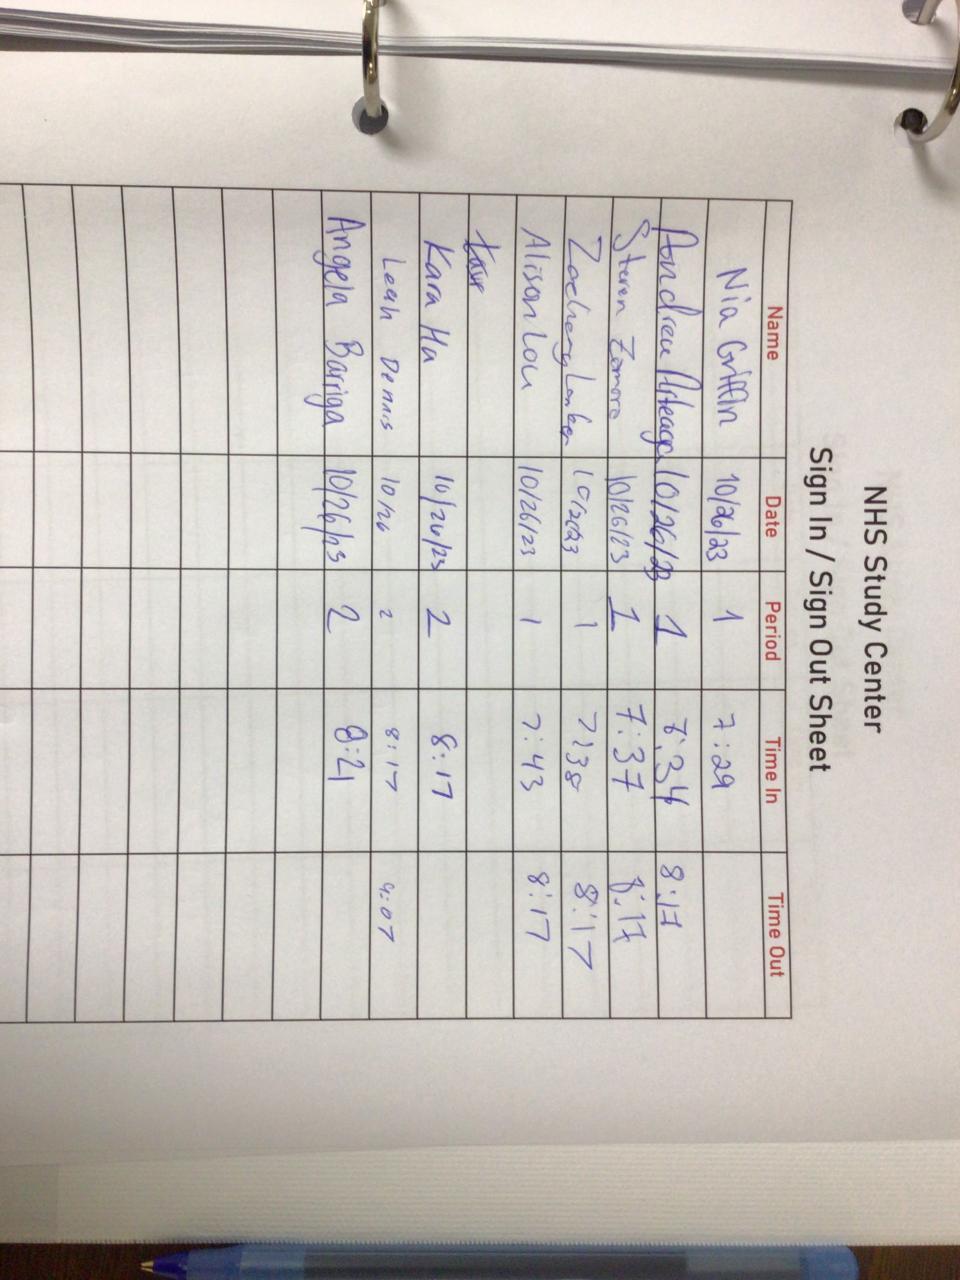 NHS Study Center
Sign In / Sign Out Sheet
Name Date Period Time In Time Out
Nia Griffin 10/26/23 1 7:29
Andrew Arteaga 10/26/23 1 7:34 8:17
Steven Zamora 10/26/23 1 7:37 8:17
Zachery 1 7:38 8:17
Alison Lou 10/26/23 1 7:43 8:17
Kara Hu 10/26/23 2 8:17
Leah Dennis 10/26 2 8:17 9:07
Angela Barriga 10/26/23 2 8:21